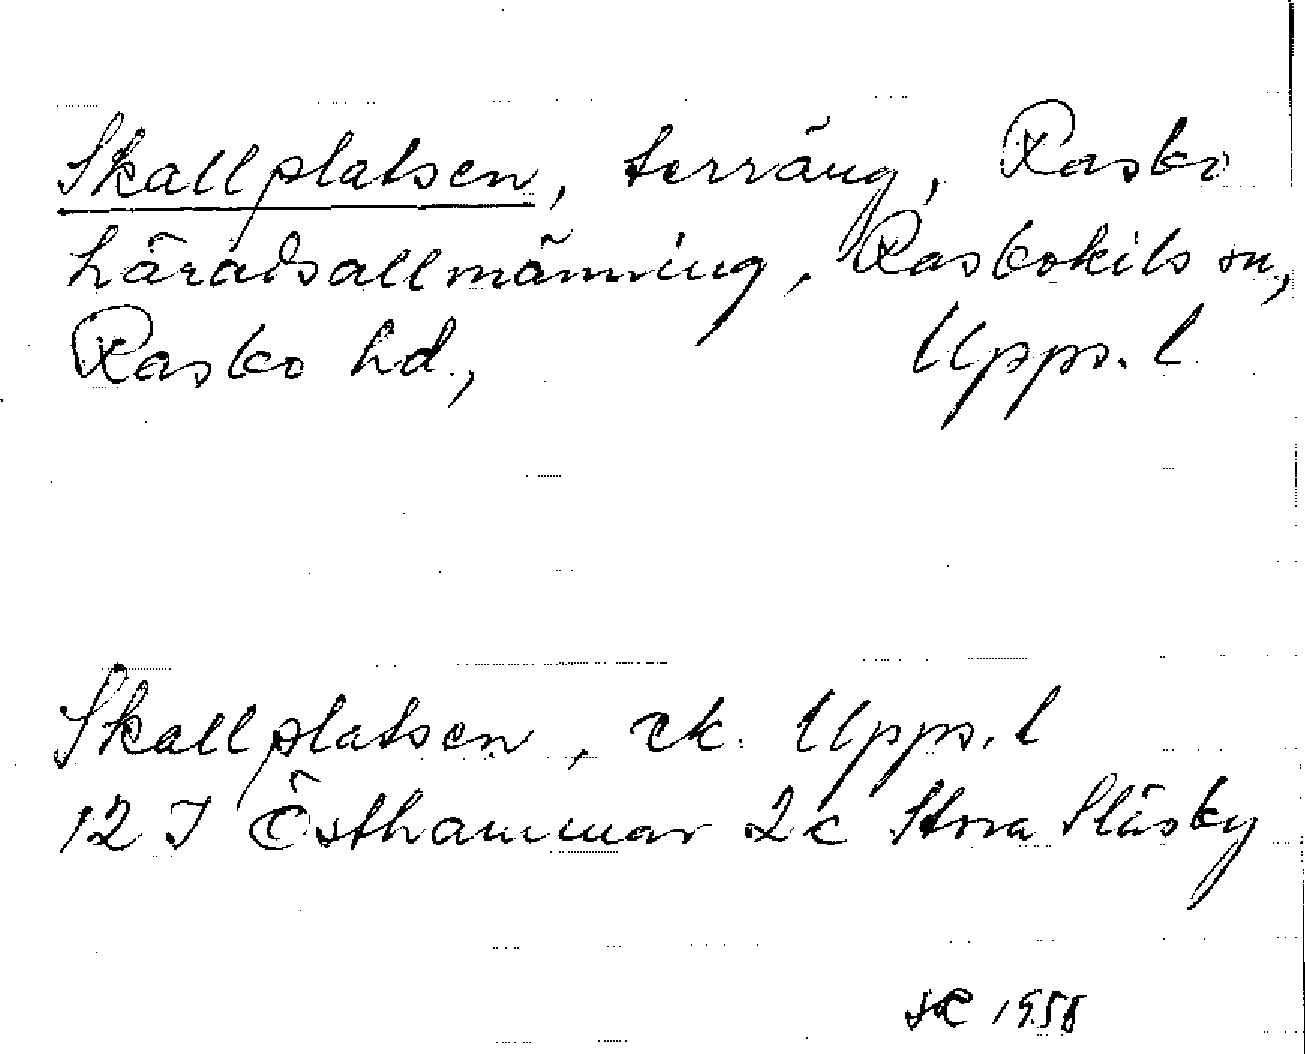 Skallplatsen, terräng, Rasbo
häradsallmänning, Rasbokils sn,
Rasbo hd., Upps. l
Skallplatsen, ek. Upps. l
12 I Östhammar 2c Stora Släsby
1958